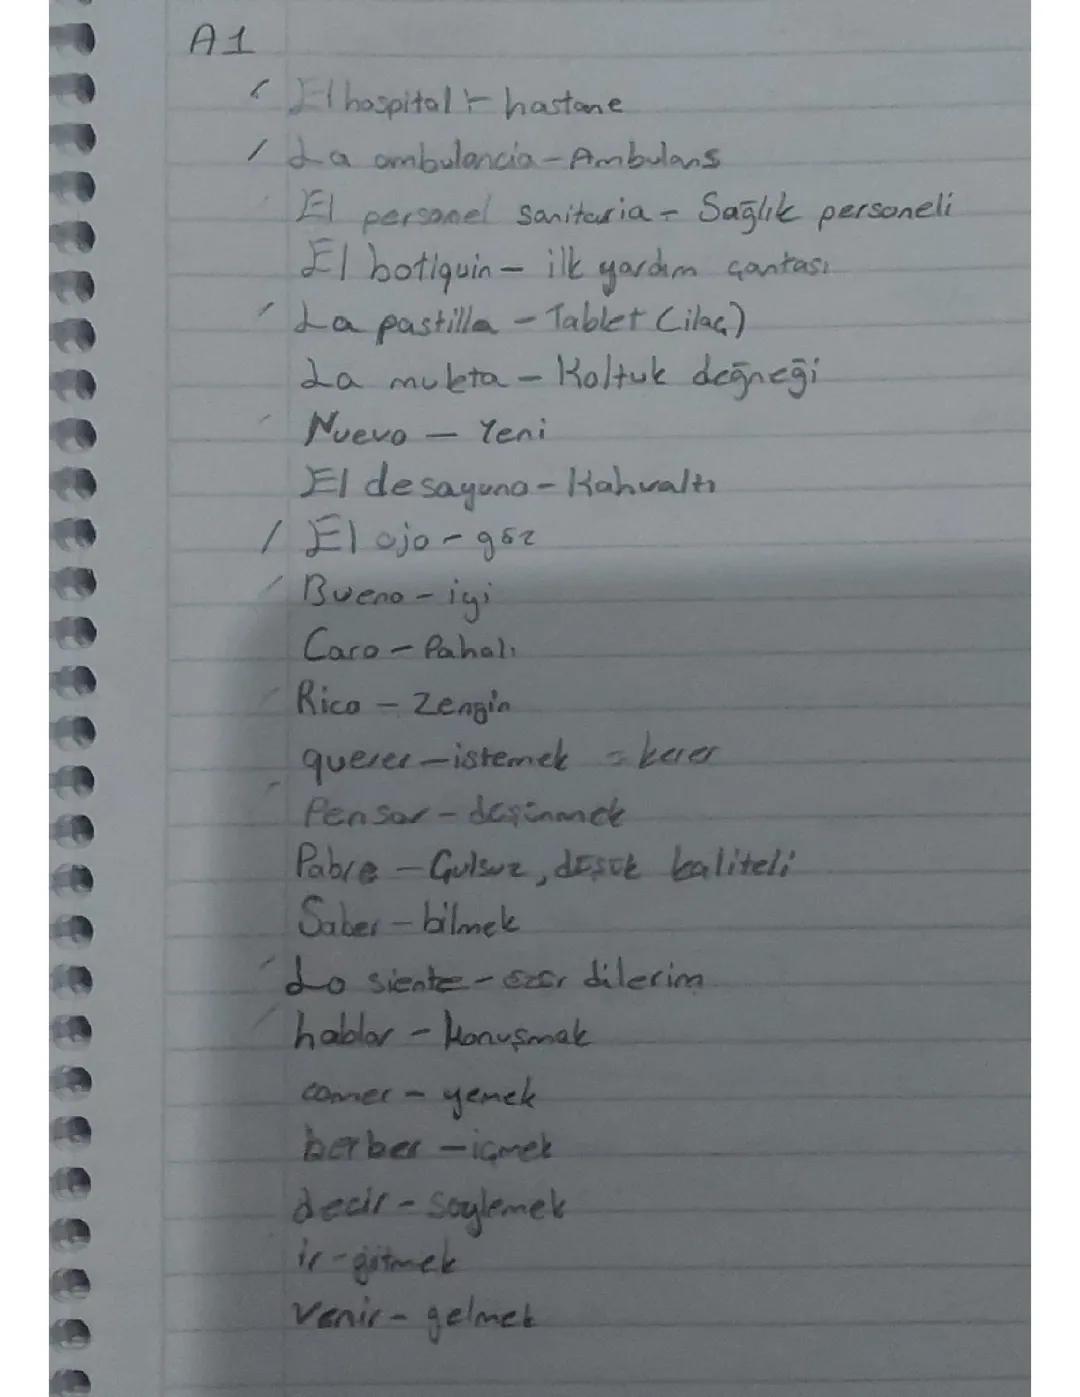 A1
El hospital - hastane
La ambulancia - Ambulans
El personel sanitaria - Sağlık personeli
El botiquin - ilk yardım çantası
La pastilla - Tablet (ilaç)
La muleta - Koltuk değneği
Nuevo - Yeni
El desayuno - Kahvaltı
El ojo - göz
Bueno - iyi
Caro - Pahalı
Rico - Zengin
querer - istemek = kerer
Pensar - düşünmek
Pobre - Gulsuz, düşük kaliteli
Saber - bilmek
Lo siente - özür dilerim
hablar - Konuşmak
comer - yemek
berber - içmek
decir - söylemek
ir - gitmek
Venir - gelmek